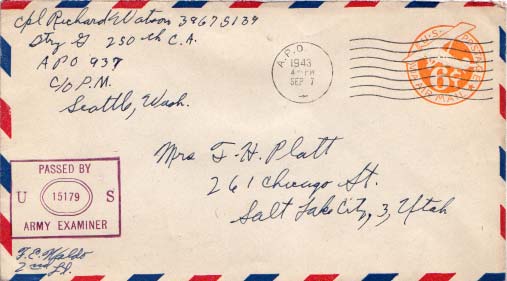 Cpl Richard Watson 39675139
Btry G 250th C.A.
APO 937
C/O P.M.
Seattle, Wash.
A.P.O.
1943
SEP 7
U.S. POSTAGE
6¢
VIA AIR MAIL
Mrs F. H. Platt
261 Chicago St.
Salt Lake City, 3, Utah
PASSED BY
U 15179 S
ARMY EXAMINER
2nd Lt.